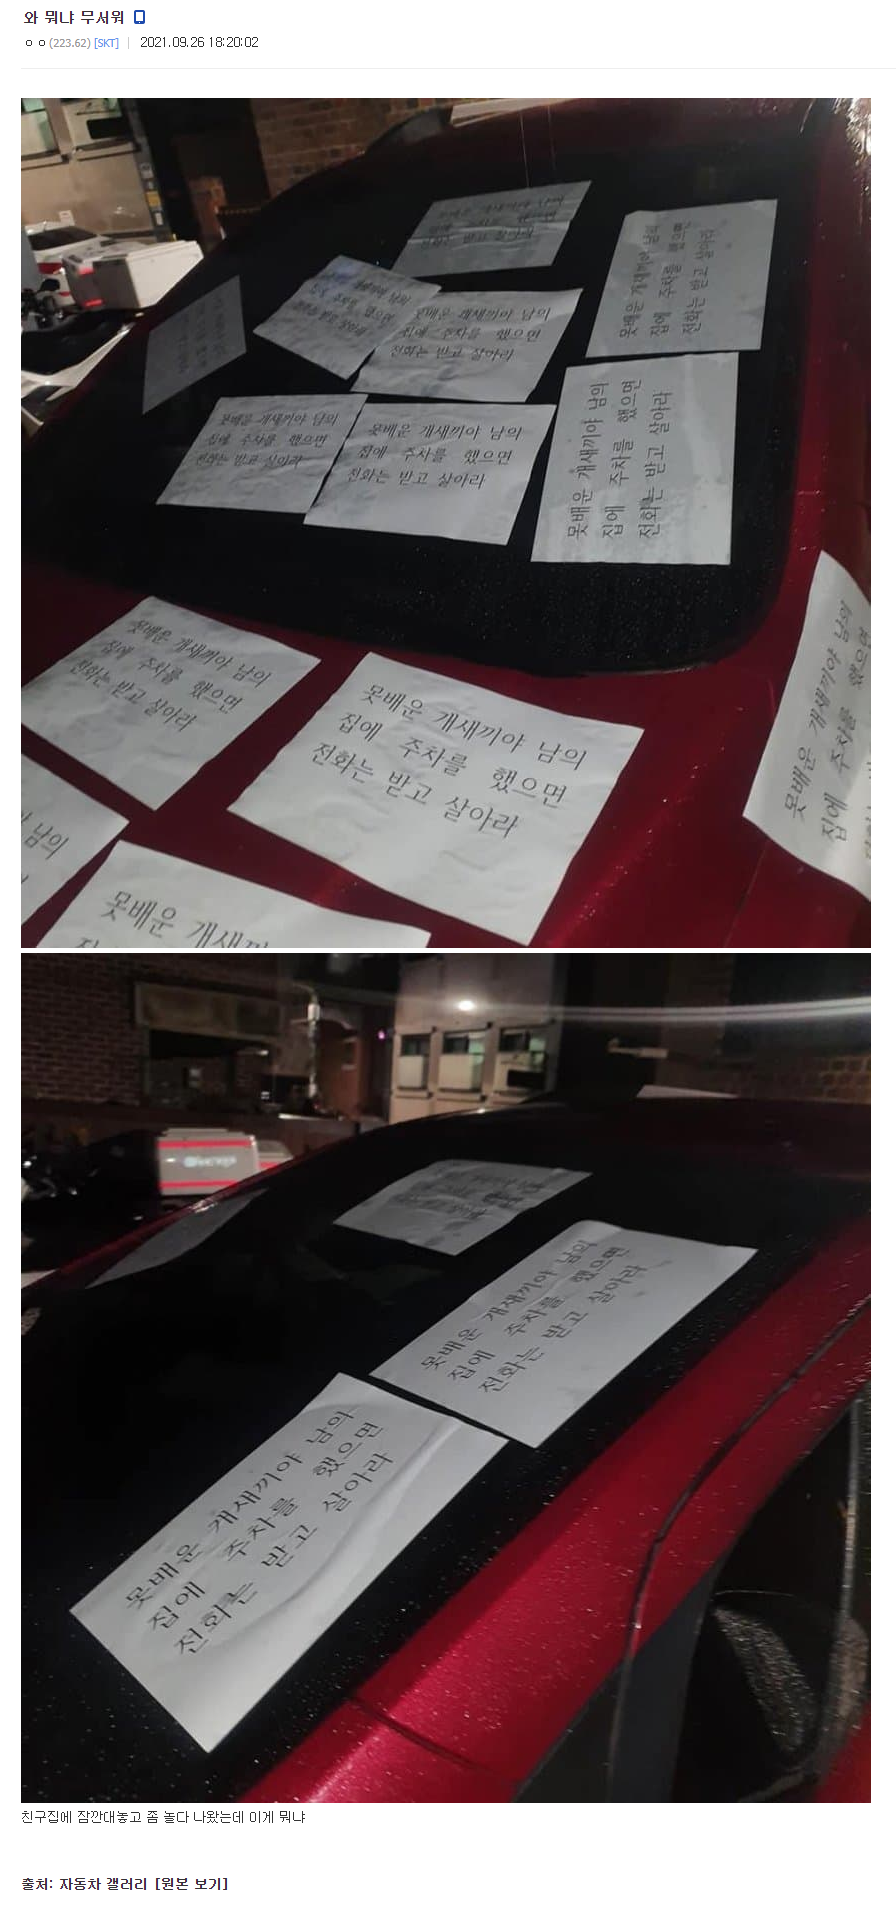 와 뭐냐 무서워
ㅇㅇ(223.62) [SKT] | 2021.09.26 18:20:02
못배운 개새끼야 남의
집에 주차를 했으면
전화는 받고 살아라
못배운 개새끼야 남의
집에 주차를 했으면
전화는 받고 살아라
못배운 개새끼야 남의
집에 주차를 했으면
전화는 받고 살아라
못배운 개새끼야 남의
집에 주차를 했으면
전화는 받고 살아라
못배운 개새끼야 남의
집에 주차를 했으면
전화는 받고 살아라
못배운 개새끼야 남의
집에 주차를 했으면
전화는 받고 살아라
못배운 개새끼야 남의
집에 주차를 했으면
전화는 받고 살아라
못배운 개새끼야 남의
집에 주차를 했으면
전화는 받고 살아라
못배운 개새끼야 남의
집에 주차를 했으면
남의
못배운 개새끼야
못배운 개새끼야 남의
집에 주차를 했으면
전화는 받고 살아라
못배운 개새끼야 남의
집에 주차를 했으면
전화는 받고 살아라
친구집에 잠깐대놓고 좀 놀다 나왔는데 이게 뭐냐
출처: 자동차 갤러리 [원본 보기]